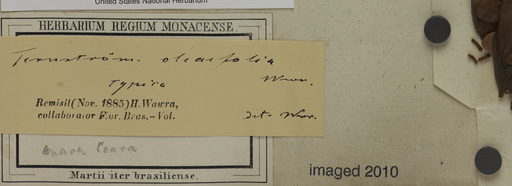 United States National Herbarium
HERBARIUM REGIUM MONACENSE.
Ternström. oleaefolia
typica Wawr.
Remisit (Nov. 1885) H. Wawra,
collaborator Flor. Bras.–Vol. det. Wawr.
Martii iter brasiliense.
imaged 2010